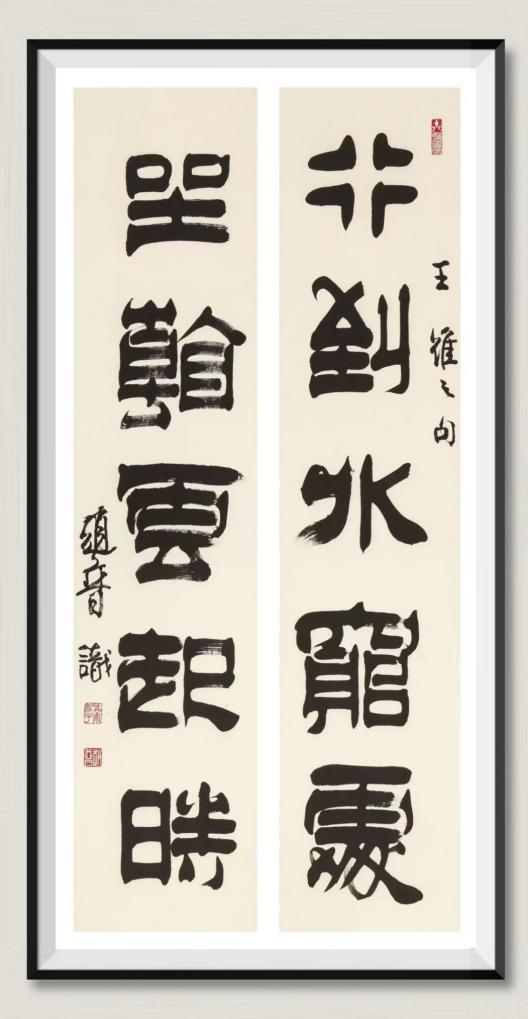 王維之句
行到水窮處
坐看雲起時
識